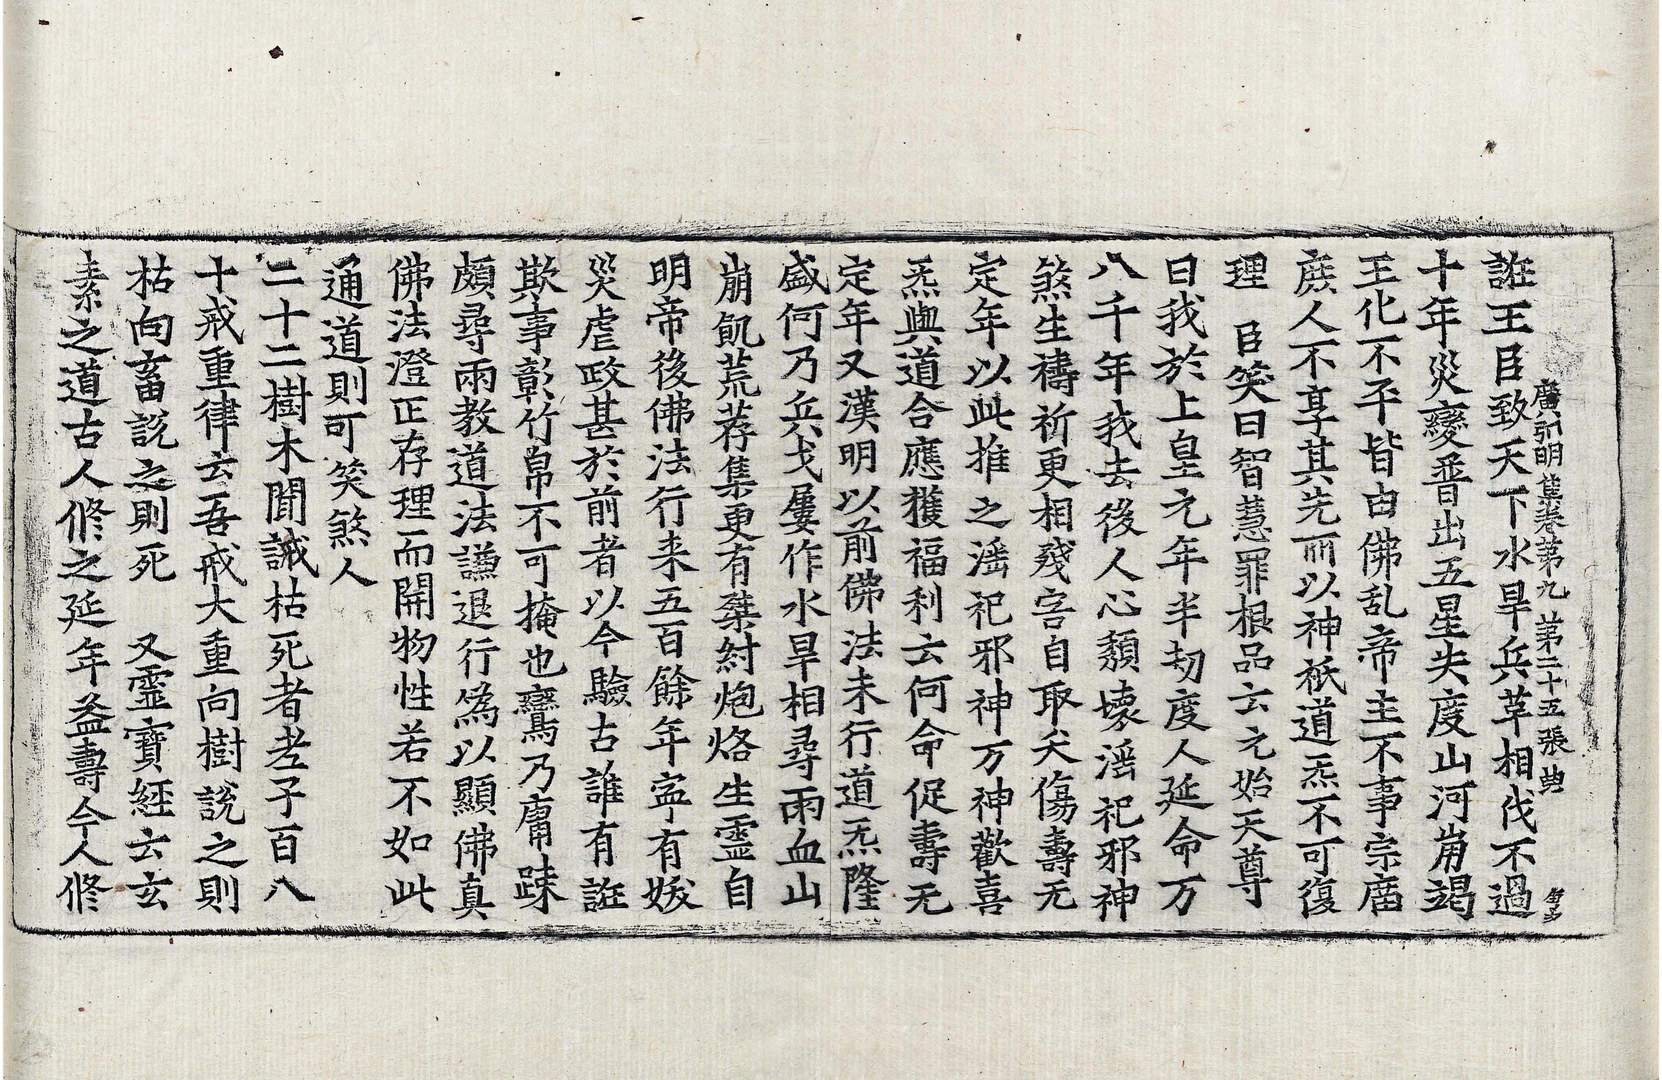 廣弘明集卷第九 第二十五張 典
誑王臣致天下水旱兵革相伐不過
十年災變普出五星失度山河崩竭
王化不平皆由佛乱帝主不事宗廟
庶人不享其先所以神祇道炁不可復
理 臣笑曰智慧罪根品云元始天尊
曰我於上皇元年半劫度人延命万
八千年我去後人心頹壊滛祀邪神
煞生禱祈更相殘害自取夭傷壽无
定年以此推之滛祀邪神万神歡喜
炁與道合應獲福利云何命促壽无
定年又漢明以前佛法未行道炁隆
盛何乃兵戈屢作水旱相尋雨血山
崩飢荒荐集更有桀紂炮烙生霊自
明帝後佛法行来五百餘年寍有妭
災虐政甚於前者以今驗古誰有誑
欺事彰竹帛不可掩也鸞乃庸踈
頗尋兩教道法謙退行為以顯佛真
佛法澄正存理而開物性若不如此
通道則可笑煞人
二十二樹木聞誡枯死者老子百八
十戒重律云吾戒大重向樹說之則
枯向畜說之則死 又霊寶経云玄
素之道古人修之延年益壽今人修